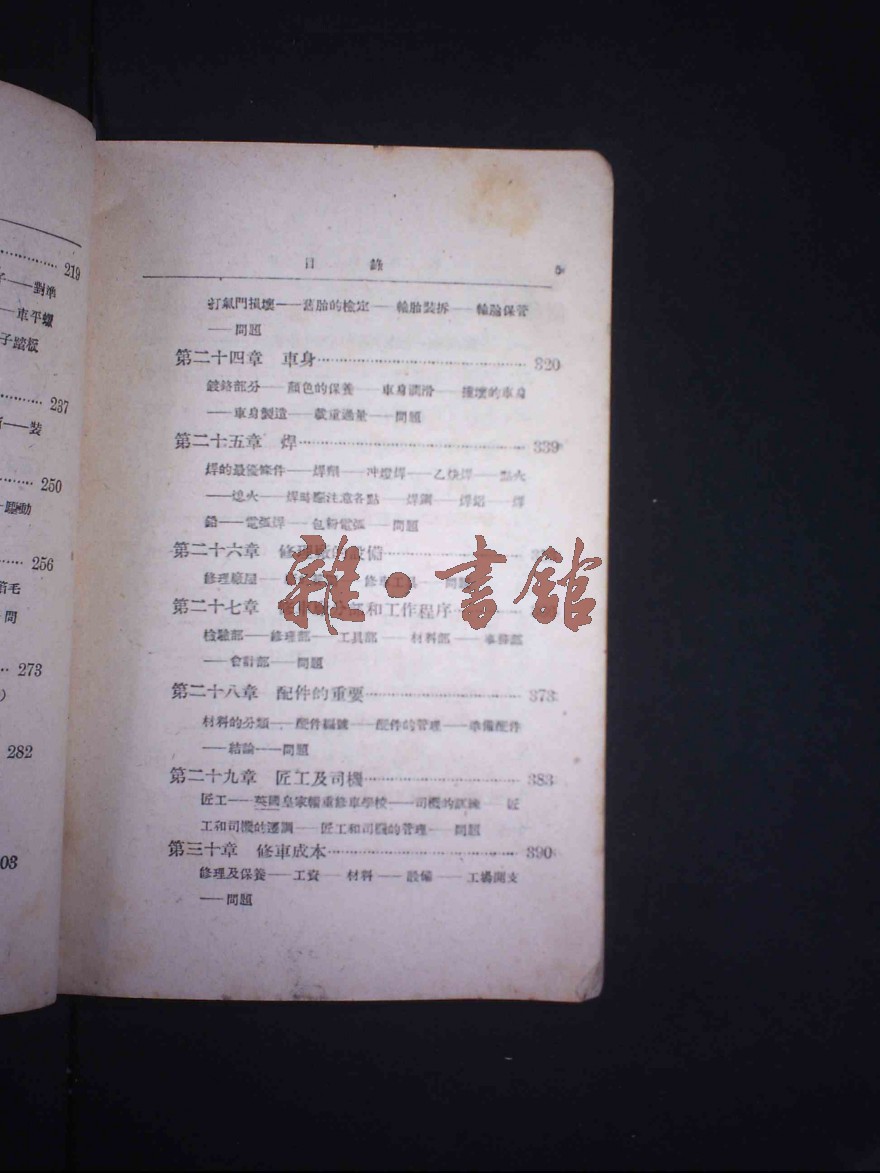 219
子——對準
車平蠟
子踏板
237
——裝
250
驅動
256
笛毛
問
273
282
03
目 錄 5
打氣門損壞——舊胎的檢定——輪胎裝拆——輪胎保管
——問題
第二十四章 車身 320
鍍鉻部分——顏色的保養——車身潤滑——撞壞的車身
——車身製造——載重過量——問題
第二十五章 焊 339
焊的最優條件——焊劑——冲燈焊——乙炔焊——點火
——熄火——焊時應注意各點——焊鋼——焊鋁——焊
鉛——電弧焊——包粉電弧——問題
第二十六章 修理廠的設備
修理廠屋 修車工具——問題
第二十七章 分部和工作程序
檢驗部——修理部——工具部——材料部——事務部
——會計部——問題
第二十八章 配件的重要 373
材料的分類——配件編號——配件的管理——準備配件
——結論——問題
第二十九章 匠工及司機 383
匠工——英國皇家輜重修車學校——司機的訓練——匠
工和司機的運調——匠工和司機的管理——問題
第三十章 修車成本 390
修理及保養——工資——材料——設備——工場開支
——問題
雜·書館